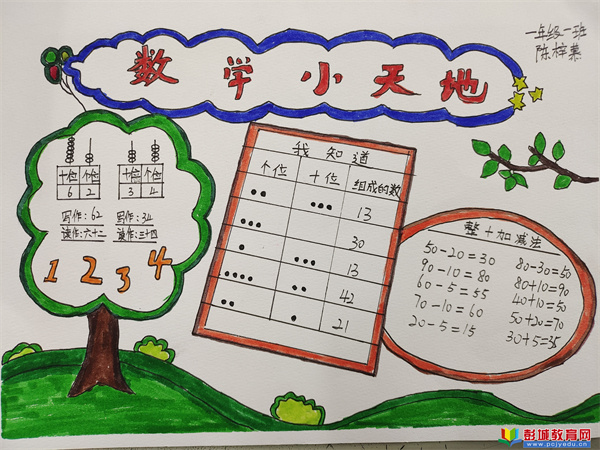 数学小天地
一年级一班
陈梓慕
十位 个位
6 2
写作:62
读作:六十二
十位 个位
3 4
写作:34
读作:三十四
1 2 3 4
我知道
个位 十位 组成的数
13
30
13
42
21
整十加减法
50-20=30
90-10=80
60-5=55
70-10=60
20-5=15
80-30=50
80+10=90
40+10=50
50+20=70
30+5=35
彭城教育网
www.pcjyedu.cn